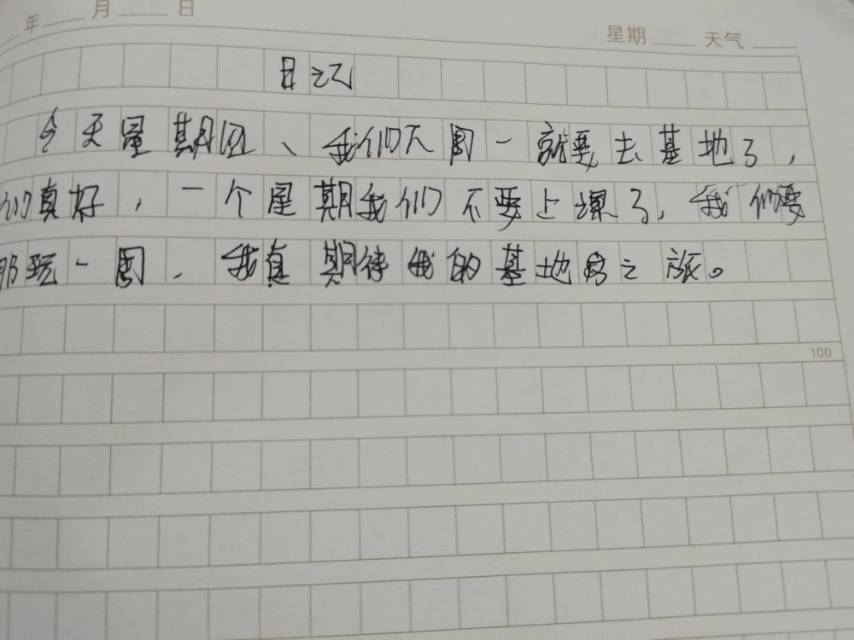 年 月 日
星期 天气
日记
今天星期五、我们下周一就要去基地了，
们真好，一个星期我们不要上课了，我们要
那玩一周．我真期待我的基地之旅。
100